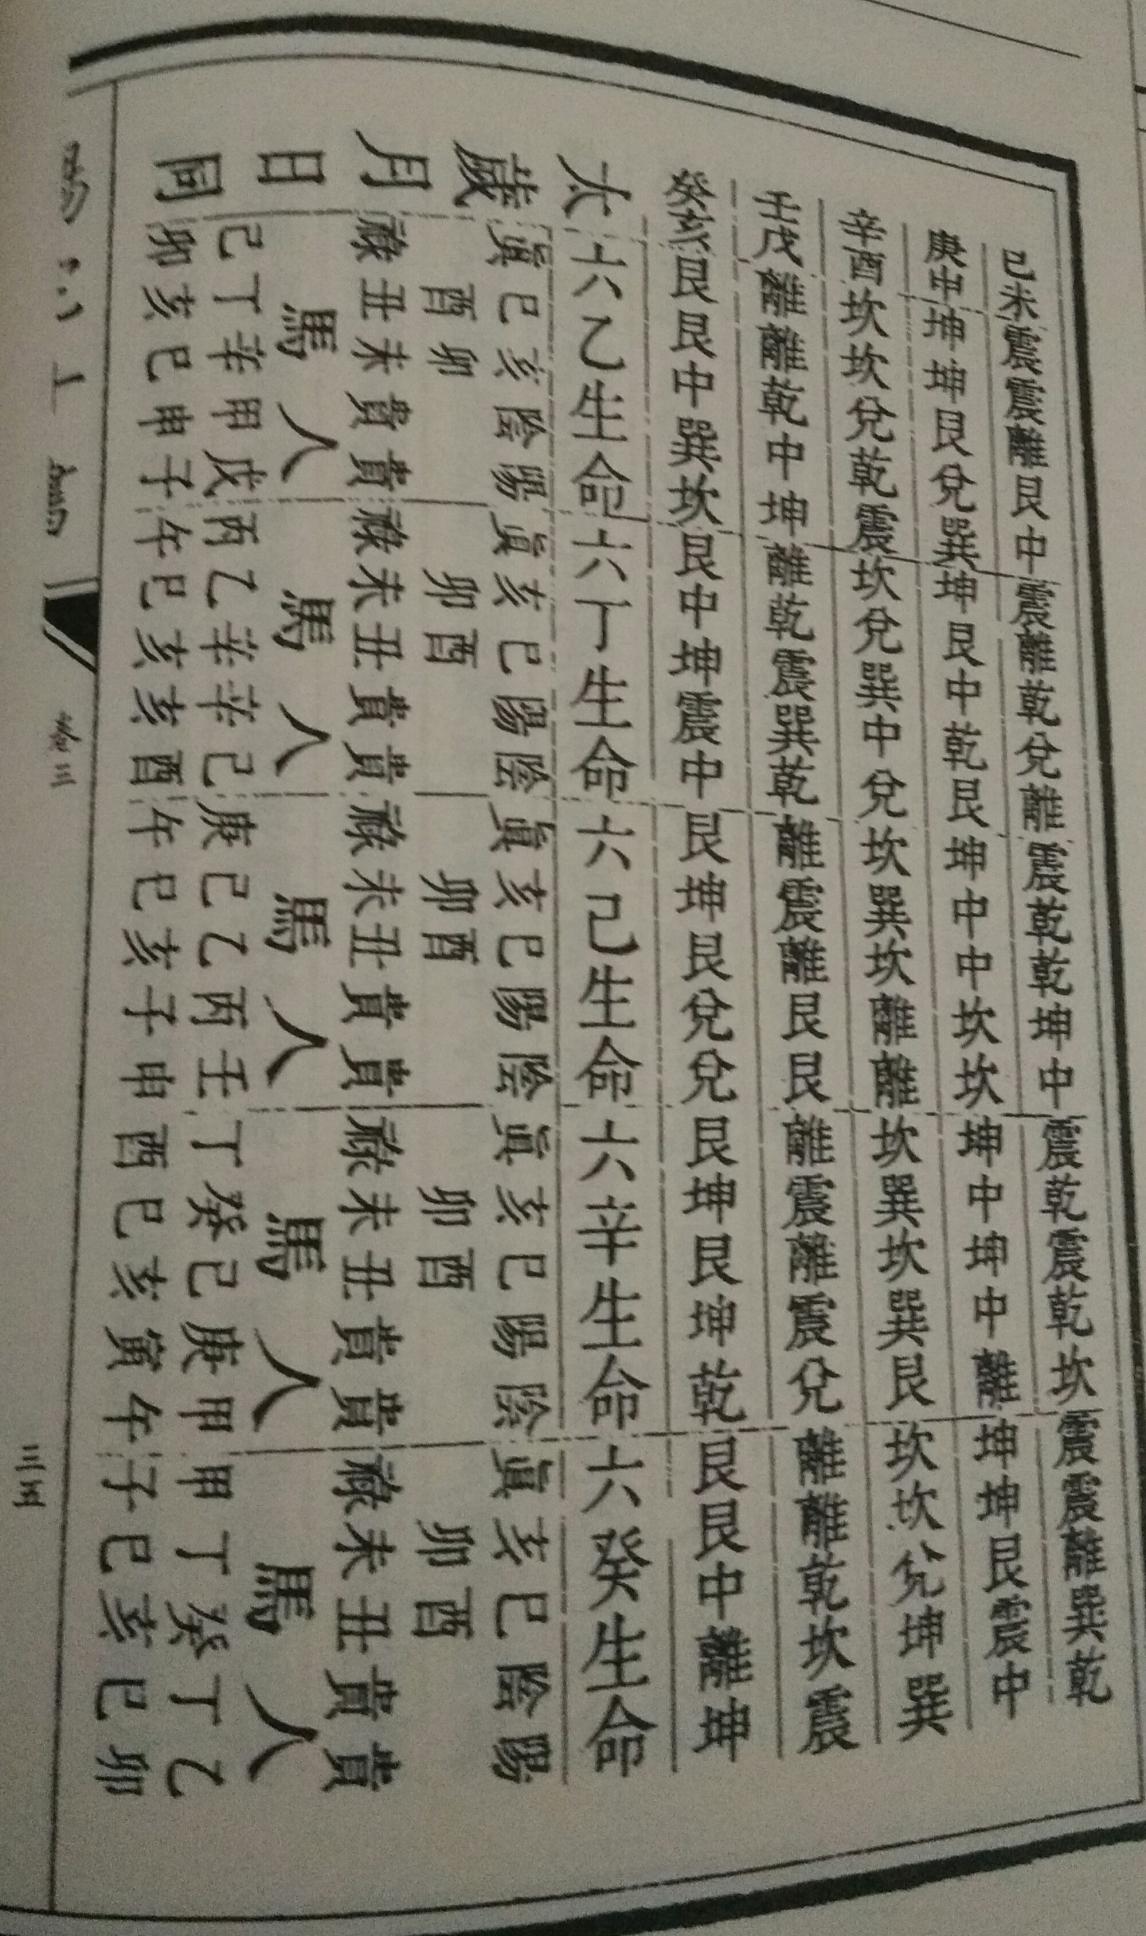 己未震震離艮中震離乾兌離震乾乾坤中震乾震乾坎震震離巽乾
庚申坤坤艮兌巽坤艮中乾艮坤中中坎坎坤中坤中離坤坤艮震中
辛酉坎坎兌乾震坎兌巽中兌坎巽坎離離坎巽坎巽艮坎坎兌坤巽
壬戌離離乾中坤離乾震巽乾離震離艮艮離震離震兌離離乾坎震
癸亥艮艮中巽坎艮中坤震中艮坤艮兌兌艮坤艮坤乾艮艮中離坤
太六乙生命六丁生命六己生命六辛生命六癸生命
歲眞巳亥陰陽眞亥巳陽陰眞亥巳陽陰眞亥巳陽陰眞亥巳陰陽
酉卯卯酉卯酉卯酉卯酉
月祿丑未貴貴祿未丑貴貴祿未丑貴貴祿未丑貴貴祿未丑貴貴
日馬人馬人馬人馬人馬人
己丁辛甲戊丙乙辛辛己庚己乙丙壬丁癸己庚甲甲丁癸丁乙
同卯亥巳申子午巳亥亥酉午巳亥子申酉巳亥寅午子巳亥巳卯
卷三
三五